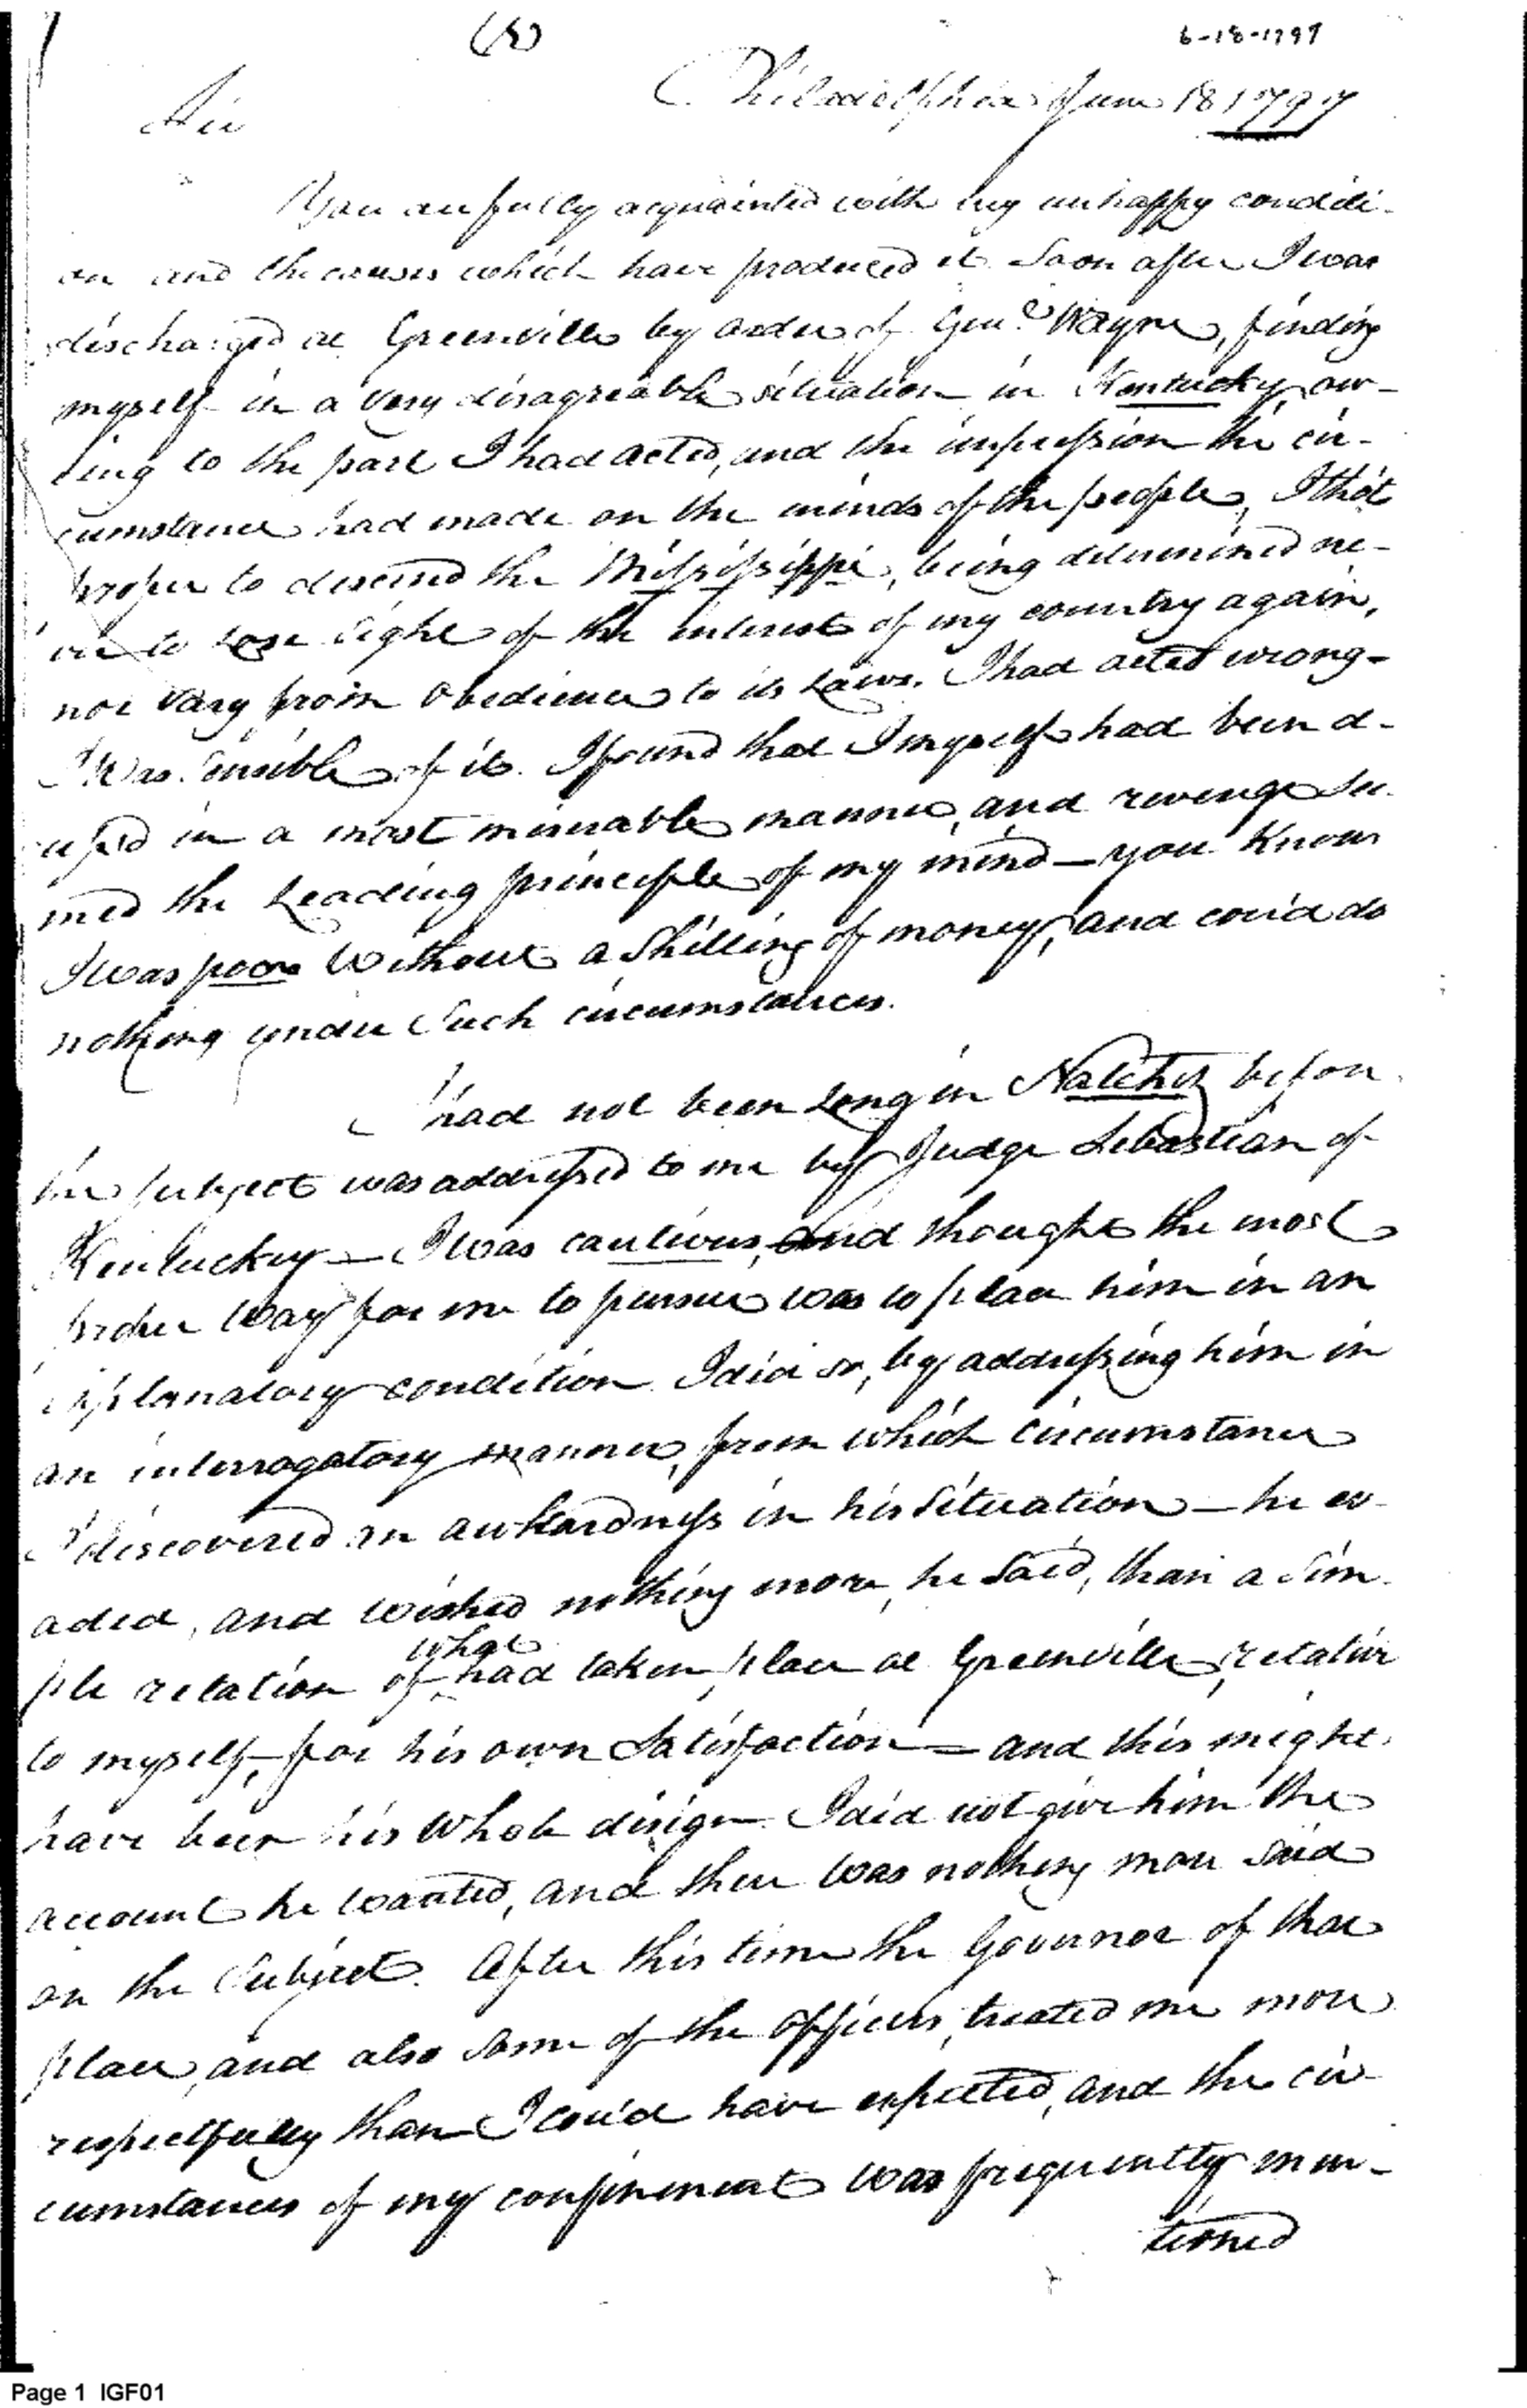 6-18-1797
Philadelphia June 18 1797
Sir
You are fully acquainted with my unhappy conditi-
on and the causes which have produced it. Soon after I was
discharged at Greenville by order of Genl. Wayne, finding
myself in a very disagreable situation in Kentucky, ow-
ing to the part I had acted, and the impression the cir-
cumstance had made on the minds of the people, I thôt
proper to descend the Mississippi, being determined ne-
ver to lose sight of the interest of my country again,
nor vary from obedience to its Laws. I had acted wrong-
I was sensible of it. I found that I myself had been a-
used in a most miserable manner, and revenge see-
med the Leading principle of my mind — you Know
I was poor without a Shilling of money, and cou'd do
nothing under Such circumstances.
I had not been Long in Natchez before
the subject was addressed to me by Judge Sebastian of
Kentuckey — I was cautious, and thought the most
proper way for me to pursue was to place him in an
explanatory condition. I did so, by addressing him in
an interrogatory manner, from which circumstance
I discovered an awkardness in his Situation — he ev-
aded, and wished nothing more, he Said, than a Sim-
ple relation of what had taken place at Greenville, relative
to myself, for his own Satisfaction — and this might
have been his Whole design. I did not give him the
account he wanted, and there was nothing more Said
on the Subject. After this time the Governor of that
place, and also Some of the officers, treated me more
respectfully than I cou'd have expected, and the cir-
cumstances of my confinement was frequently men-
tioned
Page 1 IGF01